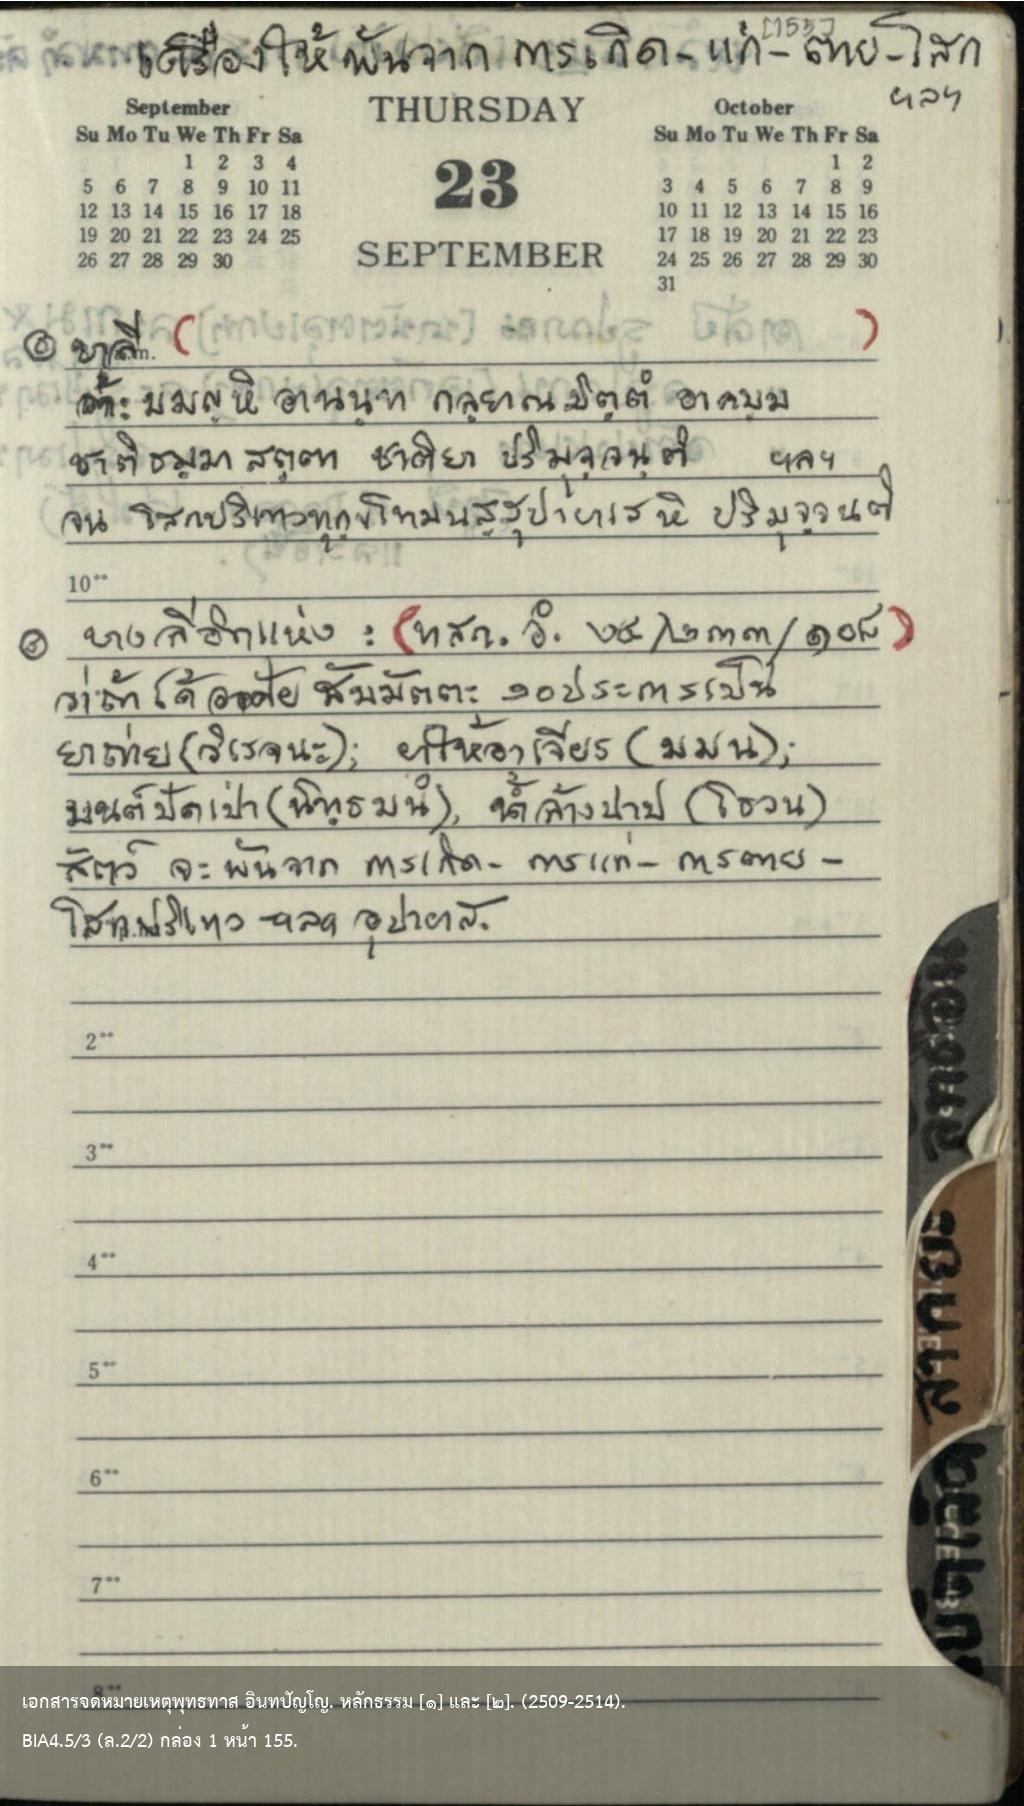 [155]
เครื่องให้พ้นจาก การเกิด-แก่-ตาย-โสก
ฯลฯ
September
Su Mo Tu We Th Fr Sa
1 2 3 4
5 6 7 8 9 10 11
12 13 14 15 16 17 18
19 20 21 22 23 24 25
26 27 28 29 30
THURSDAY
23
SEPTEMBER
October
Su Mo Tu We Th Fr Sa
1 2
3 4 5 6 7 8 9
10 11 12 13 14 15 16
17 18 19 20 21 22 23
24 25 26 27 28 29 30
31
๑ บาลี ( )
มมญฺหิ อานนฺท กลฺยาณมิตฺตํ อาคมฺม
ชาติธมฺมา สตฺตา ชาติยา ปริมุจฺจนฺติ ฯลฯ
จน โสกปริเทวทุกฺขโทมนสฺสุปายาเสหิ ปริมุจฺจนฺติ
10
๒ บาลีอีกแห่ง : (ทสก. อํ. ๒๔/๒๓๓/๑๐๘)
ว่าถ้าได้อาศัย สัมมัตตะ ๑๐ประการเป็น
ยาถ่าย(วิเรจนะ); ยาให้อาเจียร (มมน);
มนต์ปัดเป่า(นิทฺธมนํ), น้ำล้างบาป (โธวน)
สัตว์ จะพ้นจาก การเกิด- การแก่- การตาย-
โสกปริเทว ฯลฯ อุปายาส.
2
3
4
5
6
7
8
เอกสารจดหมายเหตุพุทธทาส อินทปัญโญ. หลักธรรม [๑] และ [๒]. (2509-2514).
BIA4.5/3 (ล.2/2) กล่อง 1 หน้า 155.